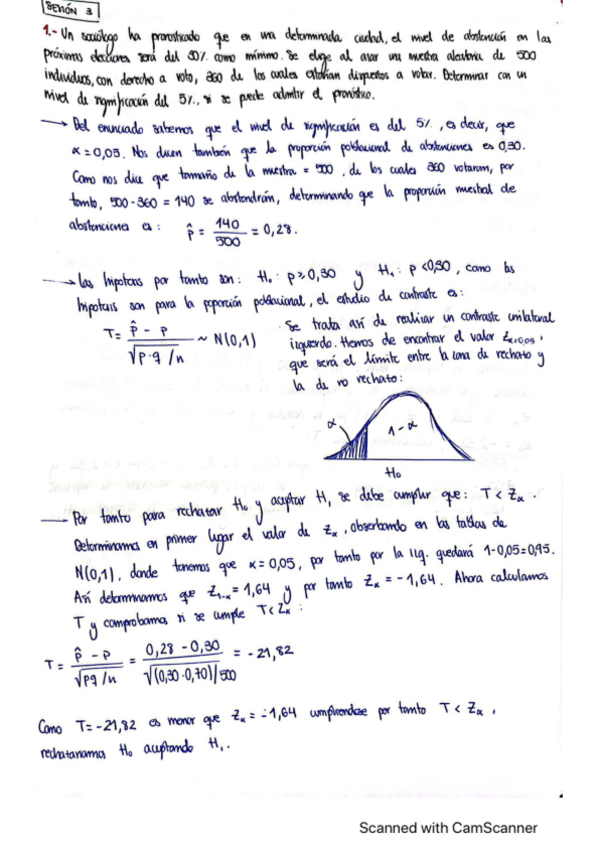 SESIÓN 3
1.- Un sociólogo ha pronosticado que en una determinada ciudad, el nivel de abstención en las
próximas elecciones será del 30% como mínimo. Se elige al azar una muestra aleatoria de 500
individuos, con derecho a voto, 360 de los cuales estarían dispuestos a votar. Determinar con un
nivel de significación del 5%, si se puede admitir el pronóstico.
→ Del enunciado sabemos que el nivel de significación es del 5%, es decir, que
α = 0,05. Nos dicen también que la proporción poblacional de abstenciones es 0,30.
Como nos dice que tamaño de la muestra = 500, de los cuales 360 votaran, por
tanto, 500-360 = 140 se abstendrán, determinando que la proporción muestral de
abstenciones es: p̂ = 140/500 = 0,28.
→ Las hipótesis por tanto son: H₀: p ≥ 0,30 y H₁: p < 0,30, como las
hipótesis son para la proporción poblacional, el estudio de contraste es:
T = p̂ - p / √p·q/n ~ N(0,1)
Se trata así de realizar un contraste unilateral
izquierdo. Hemos de encontrar el valor Zα=0,05,
que será el límite entre la zona de rechazo y
la de no rechazo:
α
1-α
H₀
→ Por tanto para rechazar H₀ y aceptar H₁ se debe cumplir que: T < Zα
Determinamos en primer lugar el valor de Zα, observando en las tablas de
N(0,1), donde tenemos que α = 0,05, por tanto por la izq. quedará 1-0,05=0,95.
Así determinamos que Z₁₋α = 1,64 y por tanto Zα = -1,64. Ahora calculamos
T y comprobamos si se cumple T < Zα:
T = p̂ - p / √pq/n = 0,28 - 0,30 / √(0,30·0,70)/500 = -21,82
Como T = -21,82 es menor que Zα = -1,64 cumpliendose por tanto T < Zα,
rechazamos H₀ aceptando H₁.
Scanned with CamScanner